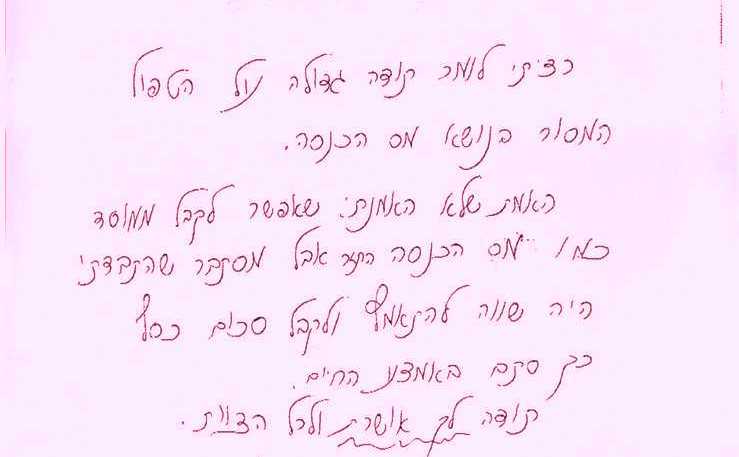 רציתי לומר תודה גדולה על הטפול
המסור בנושא מס הכנסה.
האמת שלא האמנתי שאפשר לקבל ממוסד
כמו מס הכנסה החזר אבל מסתבר שהתבדתי
היה שווה להתאמץ ולקבל סכום כסף
כך סתם באמצע החיים.
תודה לך אושרת ולכל הצוות.